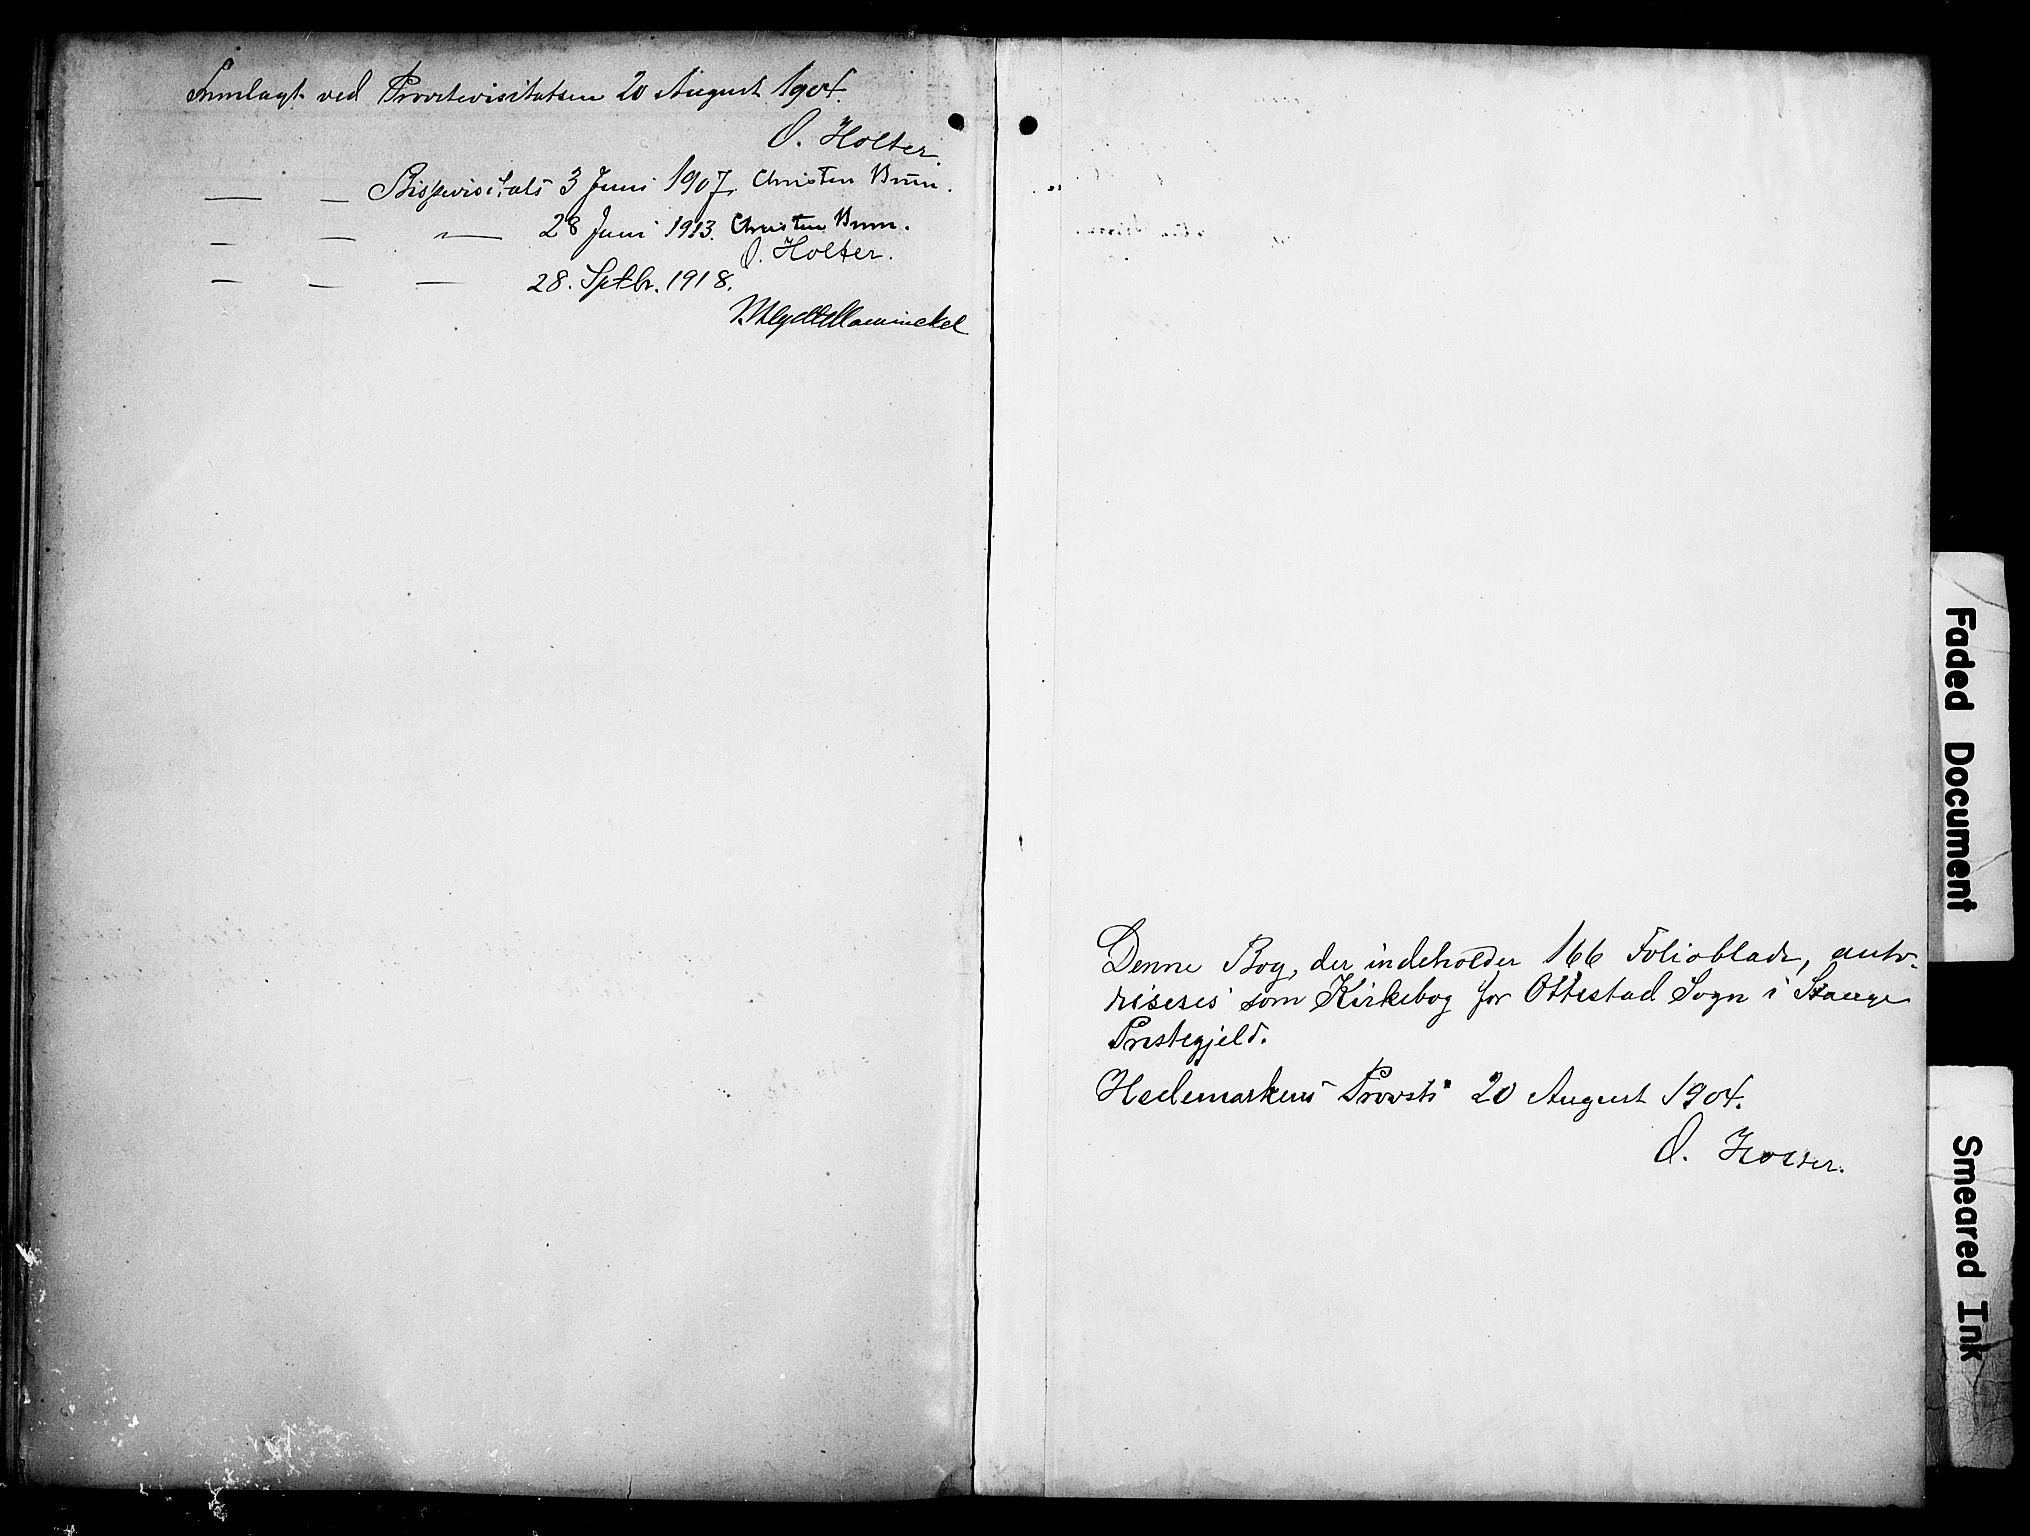 Fremlagt ved Provstevisitatsen 20 August 1904.
O. Holter.
— — Bispevisitats 3 Juni 1907. Christen Brun.
— — — 28 Juni 1913. Christen Brun.
O. Holter.
— — — 28. Sptbr. 1918.
Denne Bog, der indeholder 166 Folioblade, auto-
riseres som Kirkebog for Ottestad Sogn i Stange
Prestegjeld.
Hedemarkens Provsti 20 August 1904.
O. Holter.
Faded Document
Smeared Ink